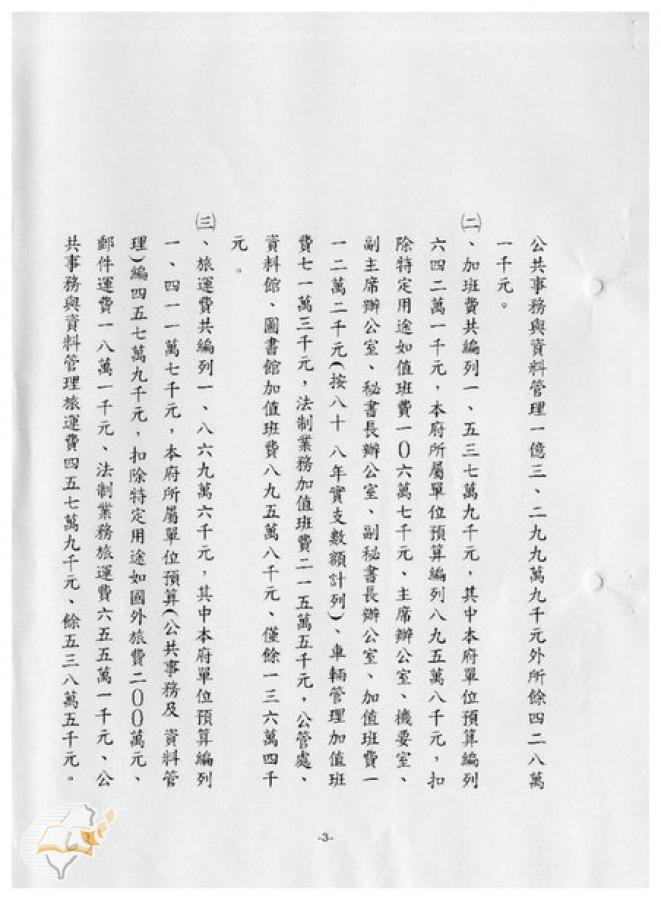 公共事務與資料管理一億三、二九九萬九千元外所餘四二八萬
一千元。
㈡、加班費共編列一、五三七萬九千元，其中本府單位預算編列
六四二萬一千元，本府所屬單位預算編列八九五萬八千元，扣
除特定用途如值班費一０六萬七千元、主席辦公室、機要室、
副主席辦公室、秘書長辦公室、副秘書長辦公室、加值班費一
一二萬二千元（按八十八年實支數額計列）、車輛管理加值班
費七一萬三千元，法制業務加值班費二一五萬五千元，公管處、
資料館、圖書館加值班費八九五萬八千元、僅餘一三六萬四千
元。
㈢、旅運費共編列一、八六九萬六千元，其中本府單位預算編列
一、四一一萬七千元，本府所屬單位預算（公共事務及資料管
理）編四五七萬九千元，扣除特定用途如國外旅費二００萬元、
郵件運費一八萬一千元、法制業務旅運費六五五萬一千元、公
共事務與資料管理旅運費四五七萬九千元、餘五三八萬五千元。
-3-